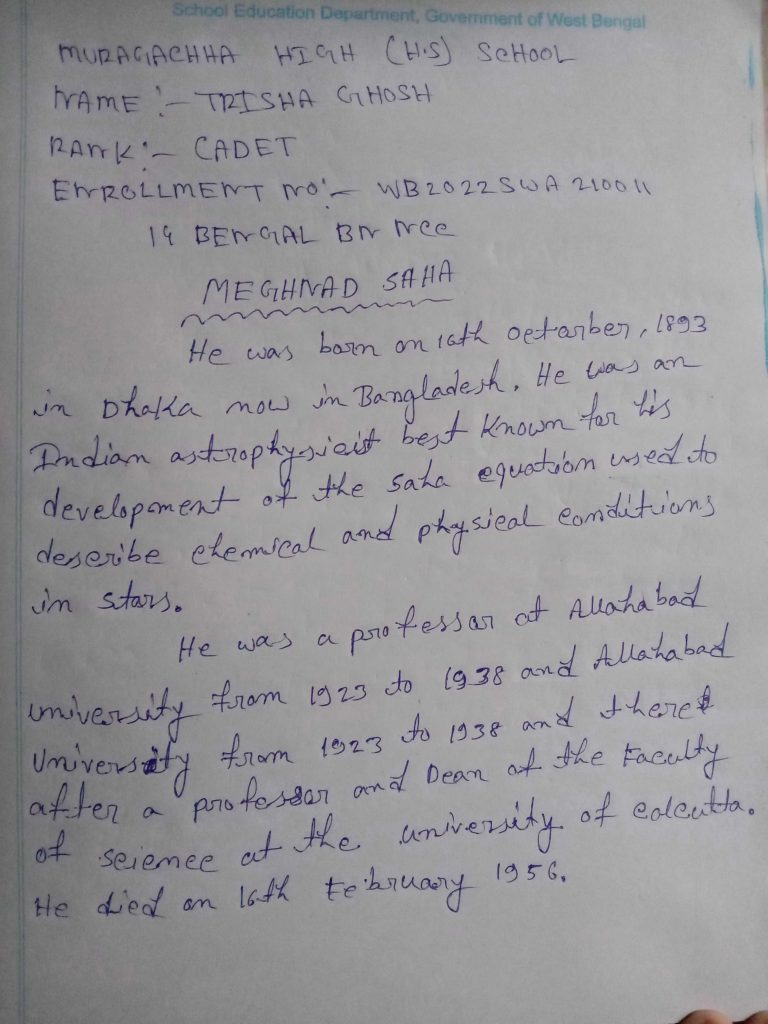 School Education Department, Government of West Bengal
MURAGACHHA HIGH (H.S) SCHOOL
NAME :- TRISHA GHOSH
RANK :- CADET
ENROLLMENT NO :- WB2022SWA210011
19 BENGAL BN NCC
MEGHNAD SAHA
He was born on 16th octorber, 1893
in Dhaka now in Bangladesh. He was an
Indian astrophysicist best known for his
development of the saha equation used to
describe chemical and physical conditions
in stars.
He was a professor at Allahabad
university from 1923 to 1938 and Allahabad
University from 1923 to 1938 and there
after a professor and Dean of the Faculty
of science at the university of calcutta.
He died on 16th February 1956.